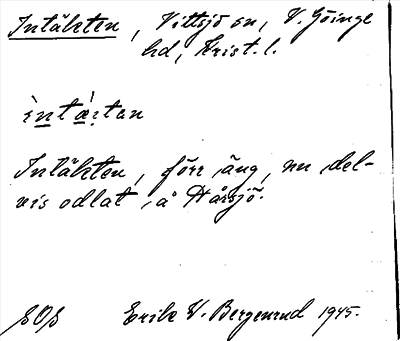 Intäkten, Vittsjö sn, V. Göinge
hd, Krist. l.
ìntæ̀ktən
Intäkten, förr äng, nu del-
vis odlat, å Hårsjö.
SOS Erik W. Bergenrud 1945.